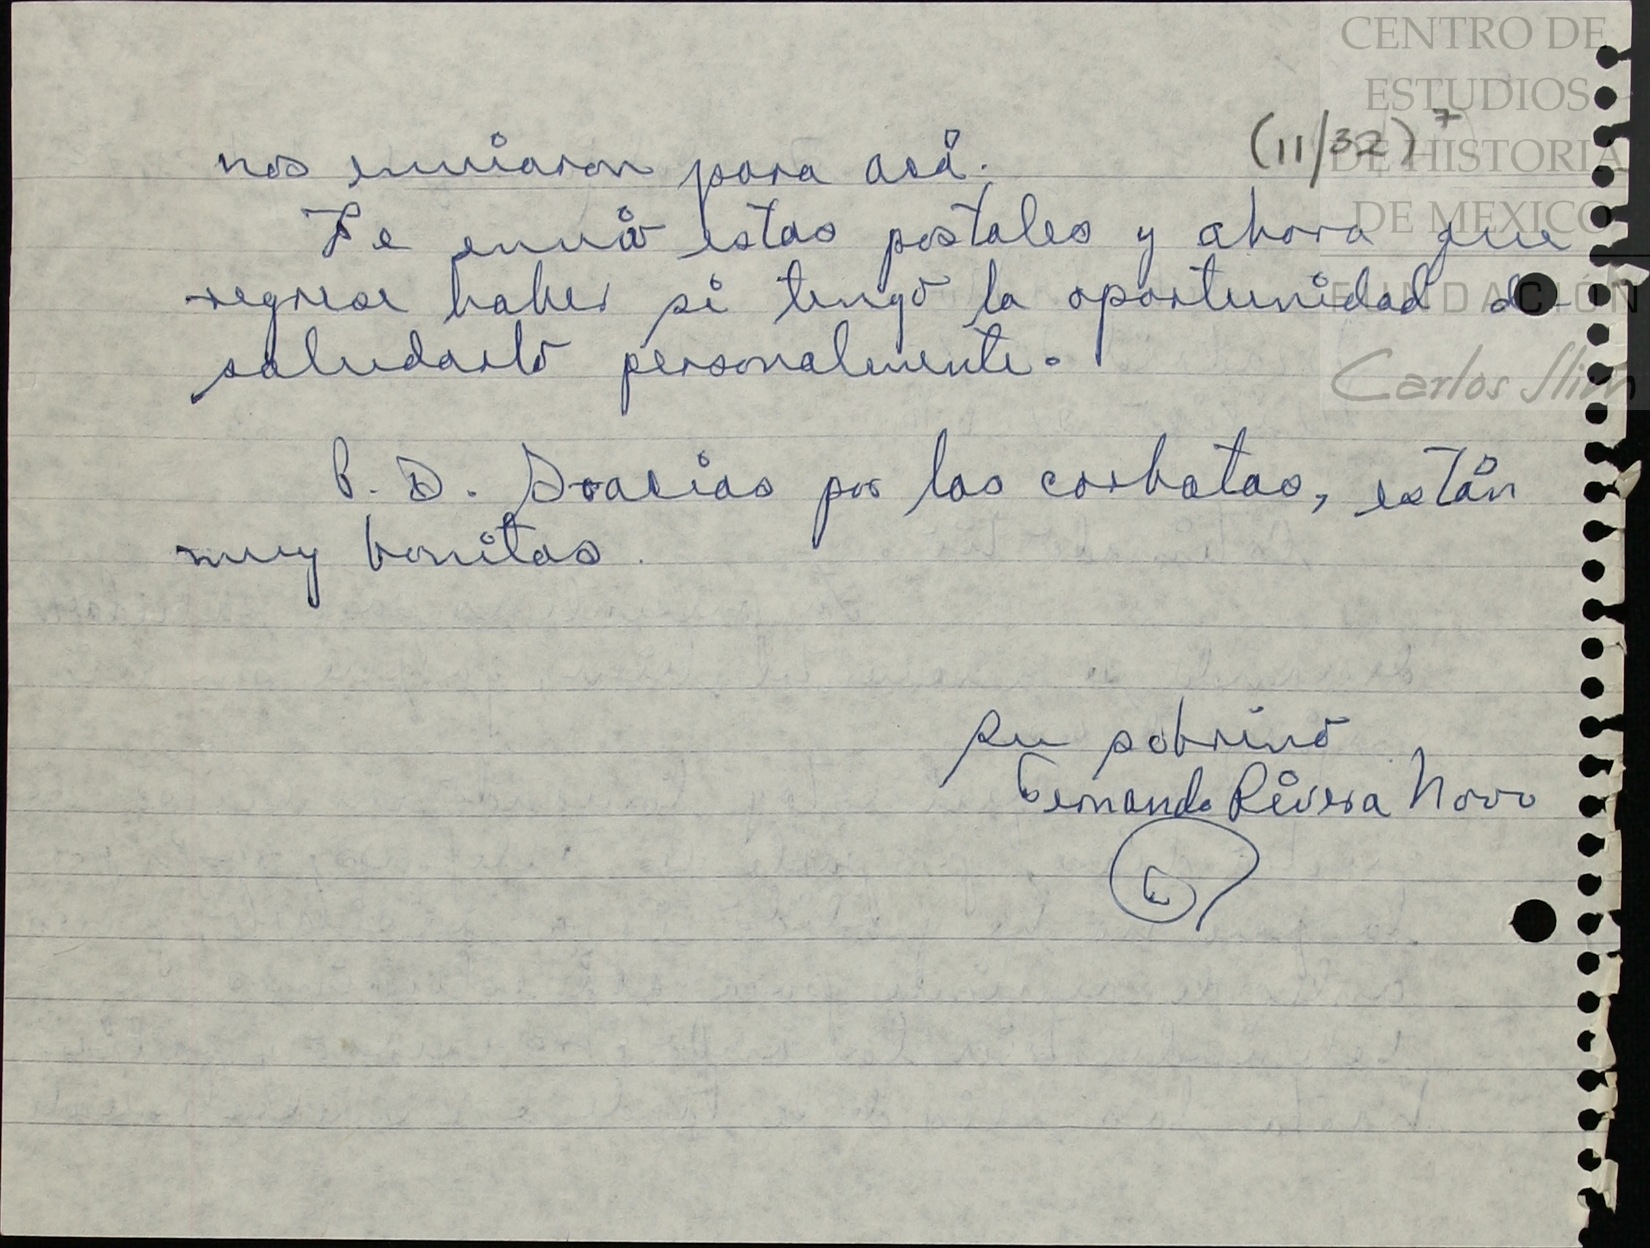 CENTRO DE
ESTUDIOS
DE HISTORIA
DE MEXICO
FUNDACIÓN
Carlos Slim
(11/32) 7
nos enviaron para acá.
Le envío estas postales y ahora que
regrese haber si tengo la oportunidad de
saludarlo personalmente.
P. D. Gracias por las corbatas, están
muy bonitas.
Su sobrino
Fernando Rivera Novo